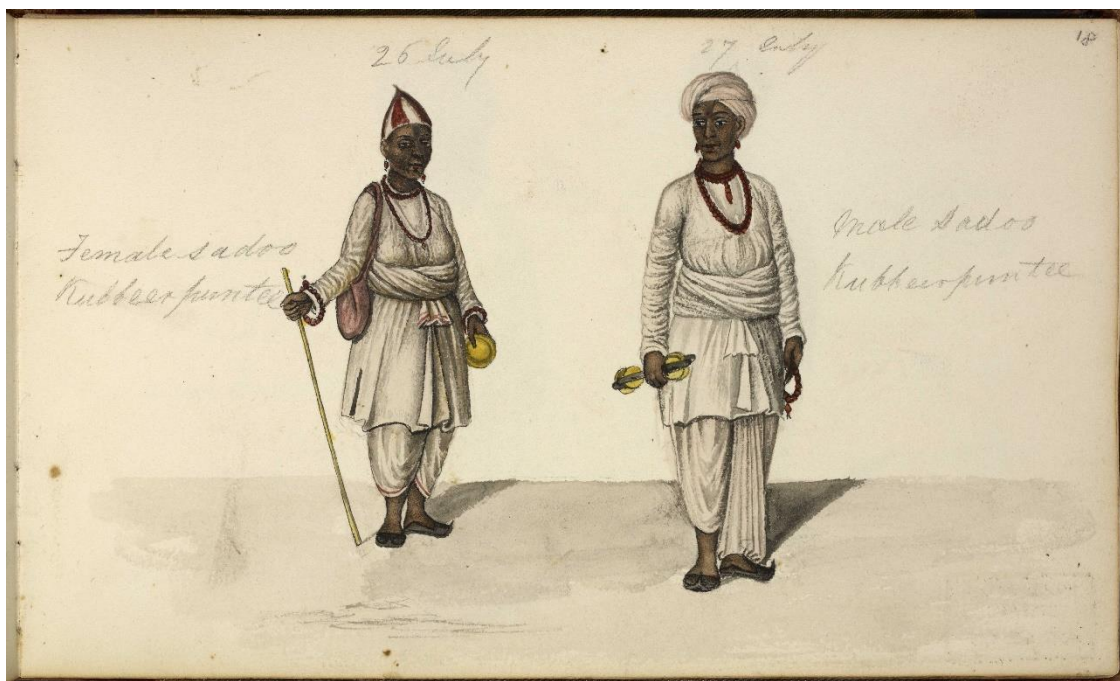 26 July
27 July
18
Female sadoo
Kubbeerpuntee
Male sadoo
Kubbeerpuntee